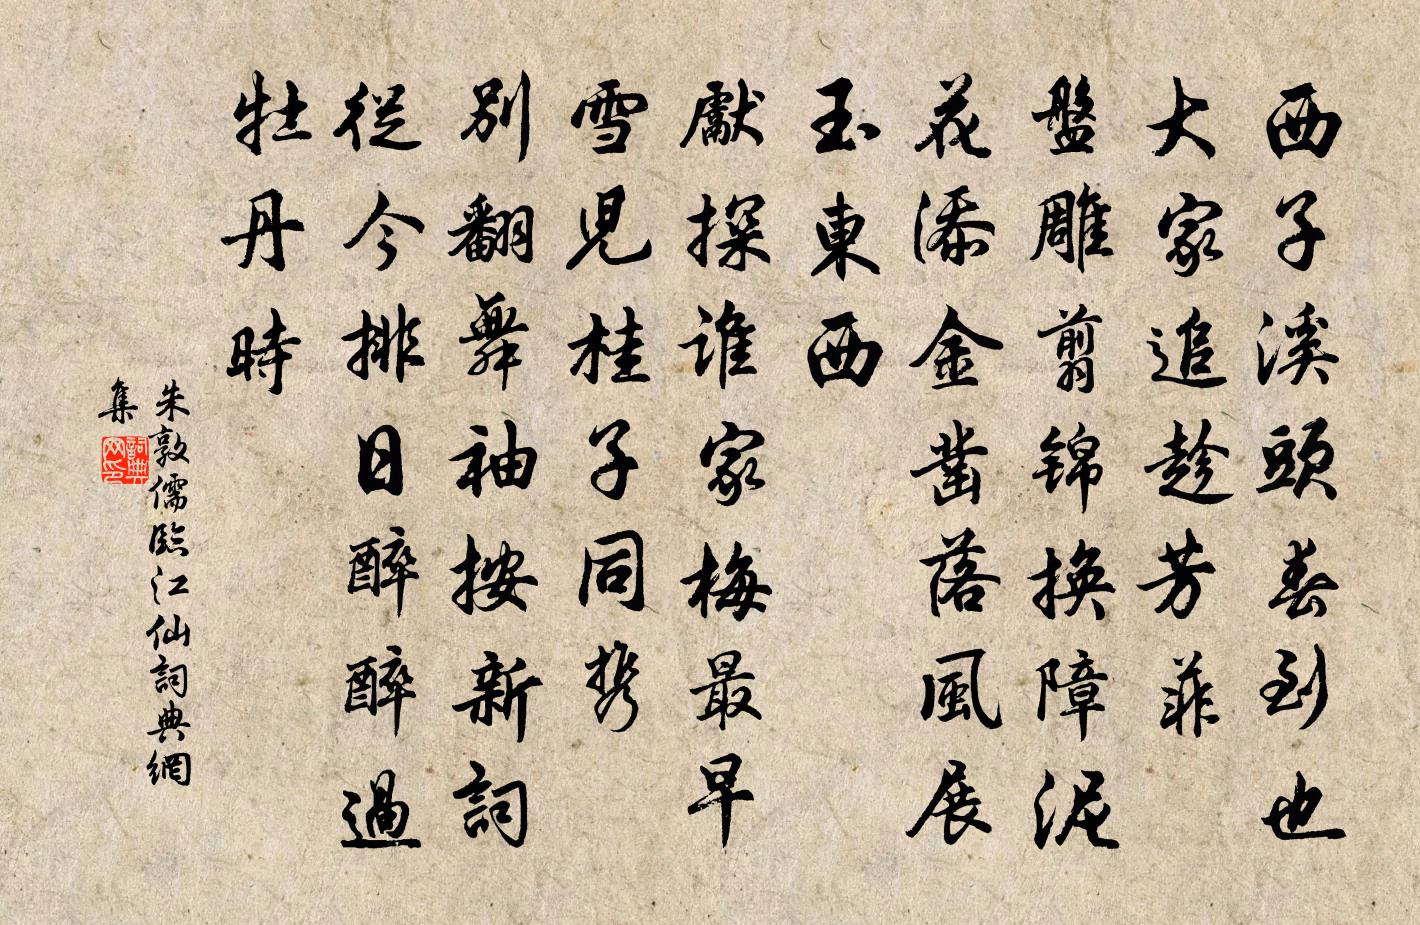 西子溪頭春到也
大家追趁芳菲
盤雕剪锦换障泥
花添金凿落風展
玉東西
獻探谁家梅最早
雪児桂子同携
别翻舞袖按新詞
從今排日醉醉過
牡丹時
朱敦儒臨江仙詞典網
集
詞典網印